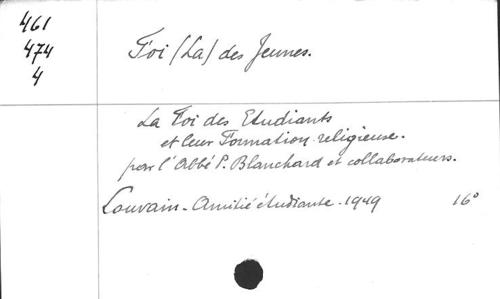 461
474
4
Foi (La) des Jeunes.
La Foi des Etudiants
et leur Formation religieuse.
par l'Abbé P. Blanchard et collaborateurs.
Louvain - Amitié étudiante - 1949 16°